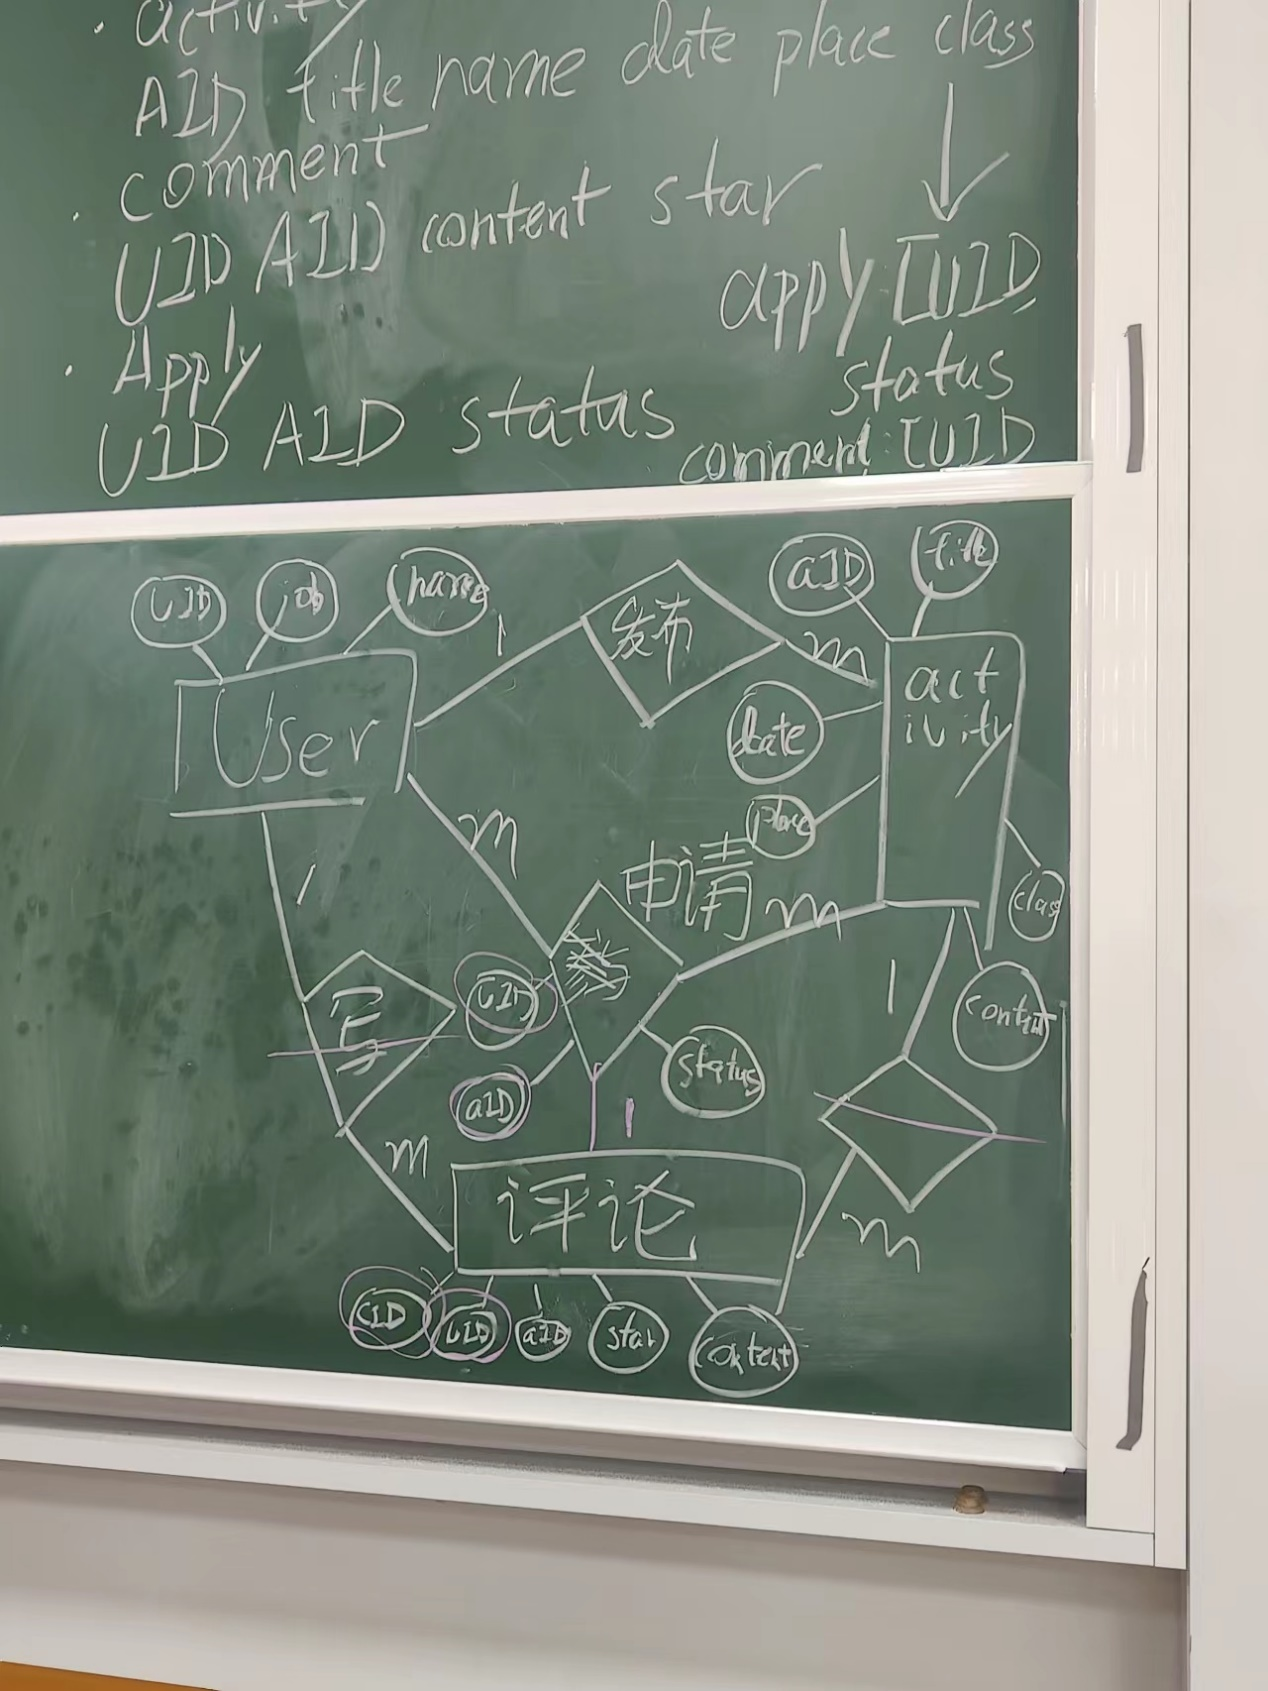 · activity
AID title name date place class
· comment
UID AID content star
appy [UID
· Apply
status
UID AID status
comment: [UID
UID
job
name
aID
title
1
发布
m
User
act
ivity
date
place
m
申请
m
class
1
写
UID
1
content
aID
status
1
m
评论
m
CID
UID
aID
star
content